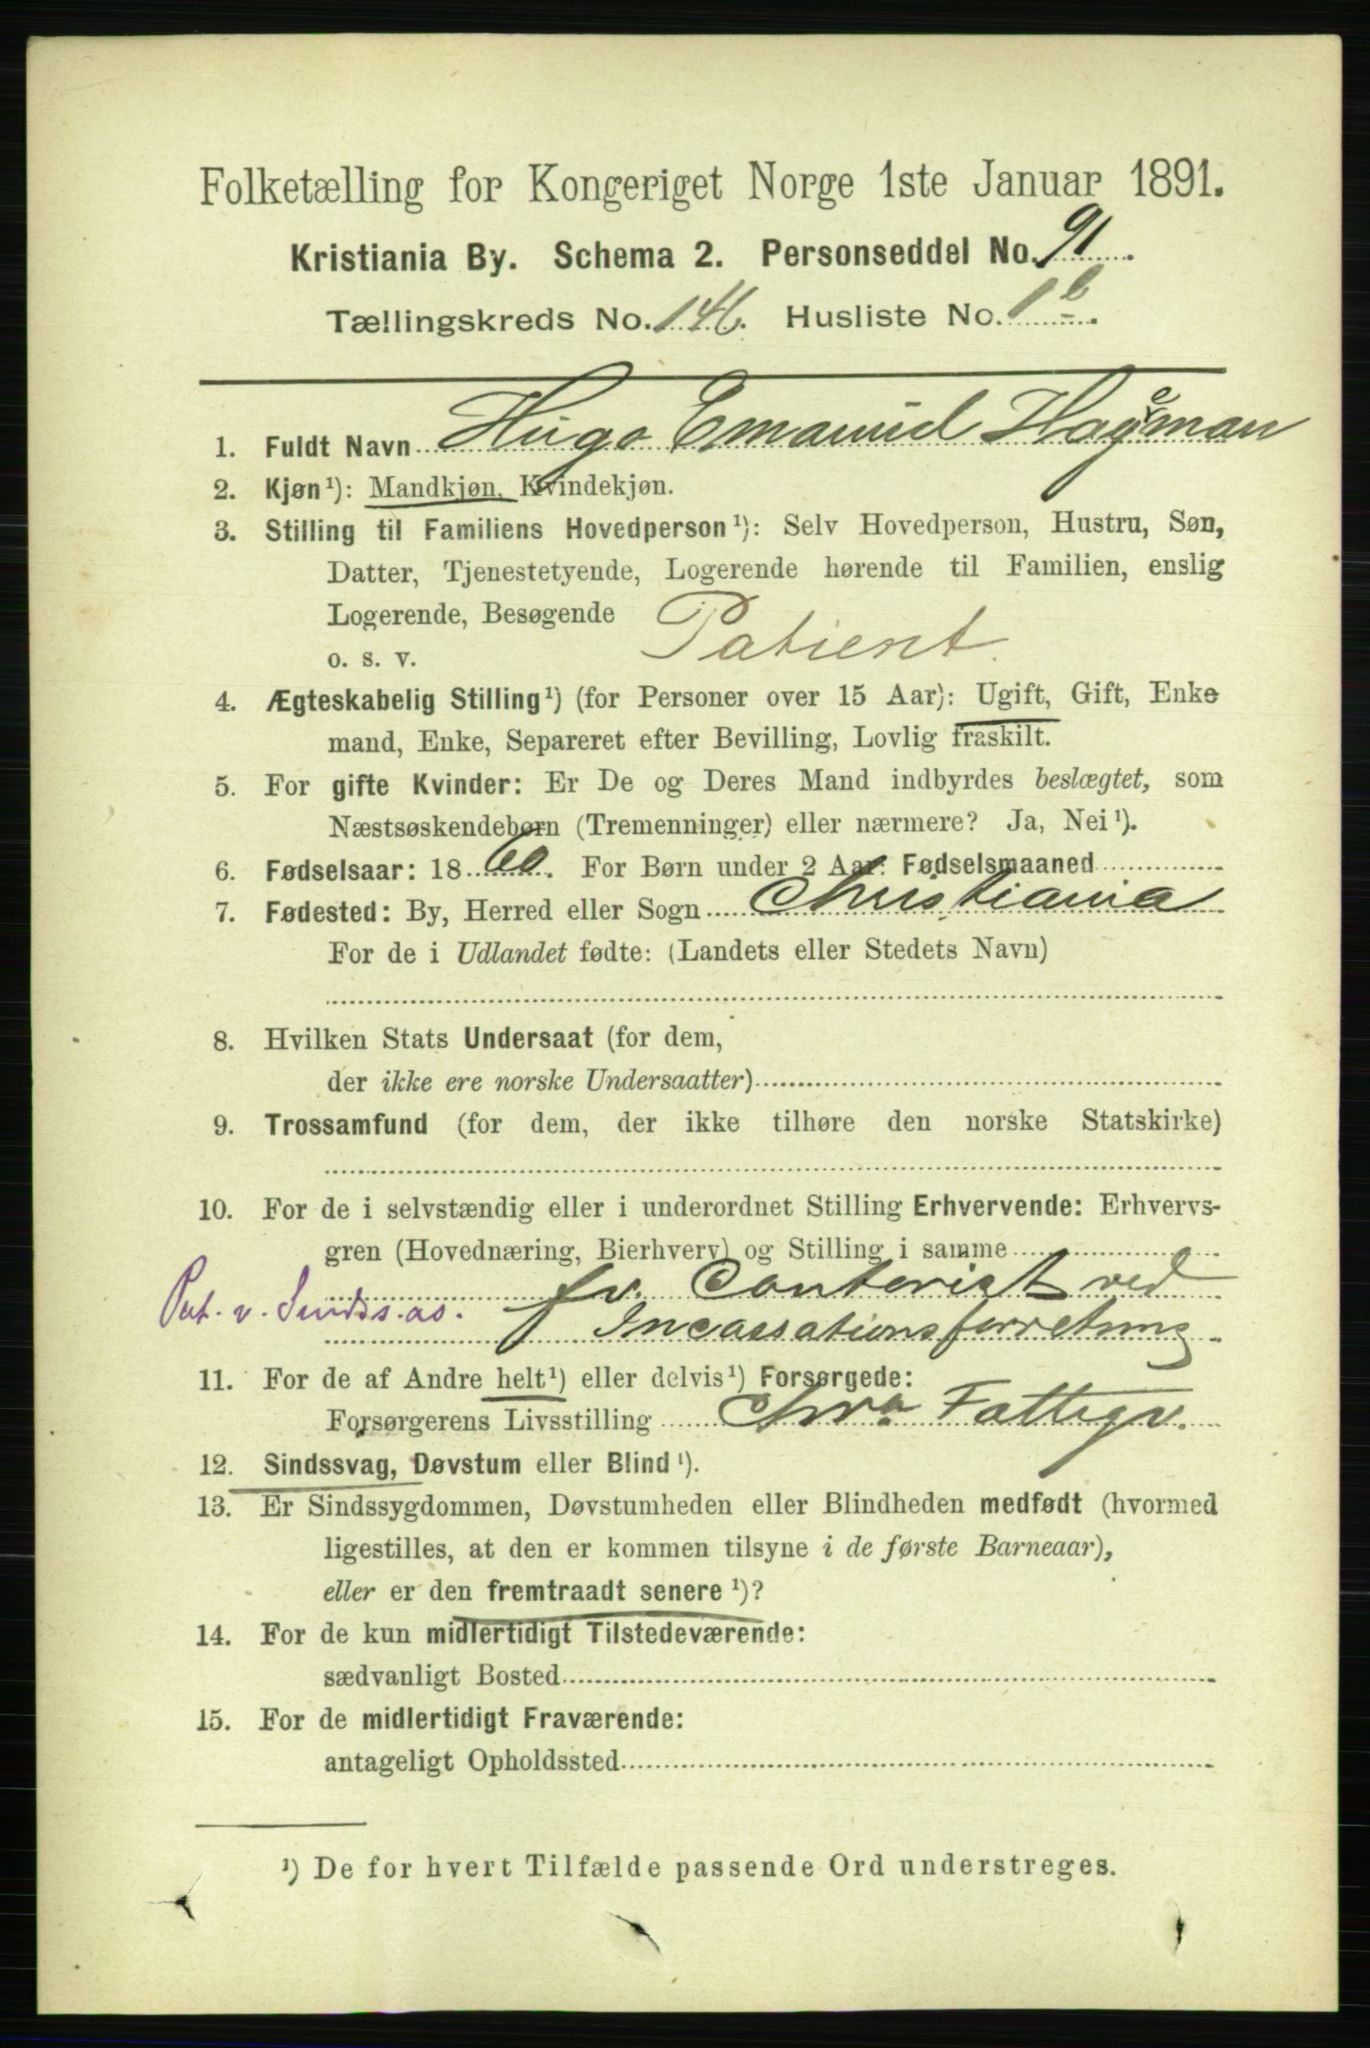 Folketælling for Kongeriget Norge 1ste Januar 1891.
Kristiania By. Schema 2. Personseddel No. 91.
Tællingskreds No. 146. Husliste No. 1 b.
1. Fuldt Navn Hugo Emanuel Hageman
2. Kjøn ¹): Mandkjøn, Kvindekjøn.
3. Stilling til Familiens Hovedperson ¹): Selv Hovedperson, Hustru, Søn,
Datter, Tjenestetyende, Logerende hørende til Familien, enslig
Logerende, Besøgende
o. s. v. Patient.
4. Ægteskabelig Stilling ¹) (for Personer over 15 Aar): Ugift, Gift, Enke
mand, Enke, Separeret efter Bevilling, Lovlig fraskilt.
5. For gifte Kvinder: Er De og Deres Mand indbyrdes beslægtet, som
Næstsøskendebørn (Tremenninger) eller nærmere? Ja, Nei ¹).
6. Fødselsaar: 18 60. For Børn under 2 Aar: Fødselsmaaned
7. Fødested: By, Herred eller Sogn Christiania
For de i Udlandet fødte: (Landets eller Stedets Navn)
8. Hvilken Stats Undersaat (for dem,
der ikke ere norske Undersaatter)
9. Trossamfund (for dem, der ikke tilhøre den norske Statskirke)
10. For de i selvstændig eller i underordnet Stilling Erhvervende: Erhvervs-
gren (Hovednæring, Bierhverv) og Stilling i samme
fv. Contorist ved
Pat. v. Sindss.as. Incassationsforretning
11. For de af Andre helt ¹) eller delvis ¹) Forsørgede:
Forsørgerens Livsstilling Chra Fattigv.
12. Sindssvag, Døvstum eller Blind ¹).
13. Er Sindssygdommen, Døvstumheden eller Blindheden medfødt (hvormed
ligestilles, at den er kommen tilsyne i de første Barneaar),
eller er den fremtraadt senere ¹)?
14. For de kun midlertidigt Tilstedeværende:
sædvanligt Bosted
15. For de midlertidigt Fraværende:
antageligt Opholdssted
¹) De for hvert Tilfælde passende Ord understreges.